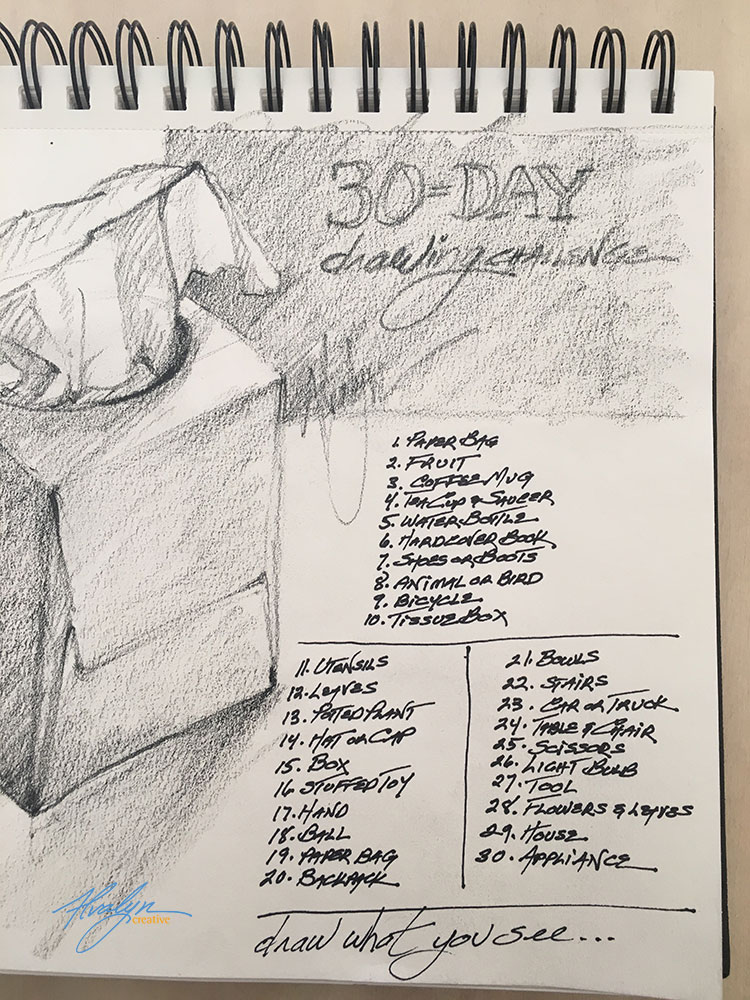 30-DAY
drawing CHALLENGE
1. PAPER BAG
2. FRUIT
3. COFFEE MUG
4. TEA CUP & SAUCER
5. WATER BOTTLE
6. HARDCOVER BOOK
7. SHOES OR BOOTS
8. ANIMAL OR BIRD
9. BICYCLE
10. TISSUE BOX
11. UTENSILS
12. LEAVES
13. POTTED PLANT
14. HAT OR CAP
15. BOX
16. STUFFED TOY
17. HAND
18. BALL
19. PAPER BAG
20. BACKPACK
21. BOWLS
22. STAIRS
23. CAR OR TRUCK
24. TABLE & CHAIR
25. SCISSORS
26. LIGHT BULB
27. TOOL
28. FLOWERS & LEAVES
29. HOUSE
30. APPLIANCE
draw what you see...
Alvalyn
creative